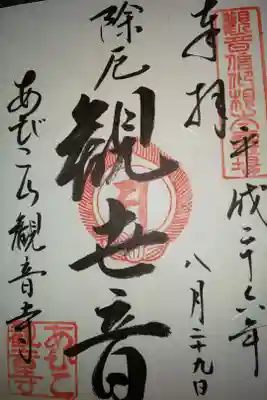 奉拝
平成二十六年
八月二十九日
除厄
観世音
あびこ山観音寺
観音信仰根本道場
あびこ
観音寺